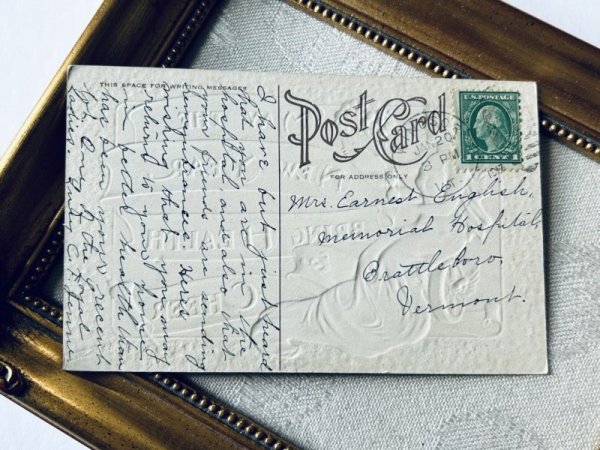 THIS SPACE FOR WRITING MESSAGES
I have but just heard
that you are in the
hospital and also that
your friends are sending
remembrances. Here
wishing that you may
in better health than
has been yours
of the
Post Card
FOR ADDRESS ONLY
U.S. POSTAGE
1 CENT 1
JAN 20
PM
Mrs. Earnest English,
Memorial Hospital,
Brattleboro
Vermont.